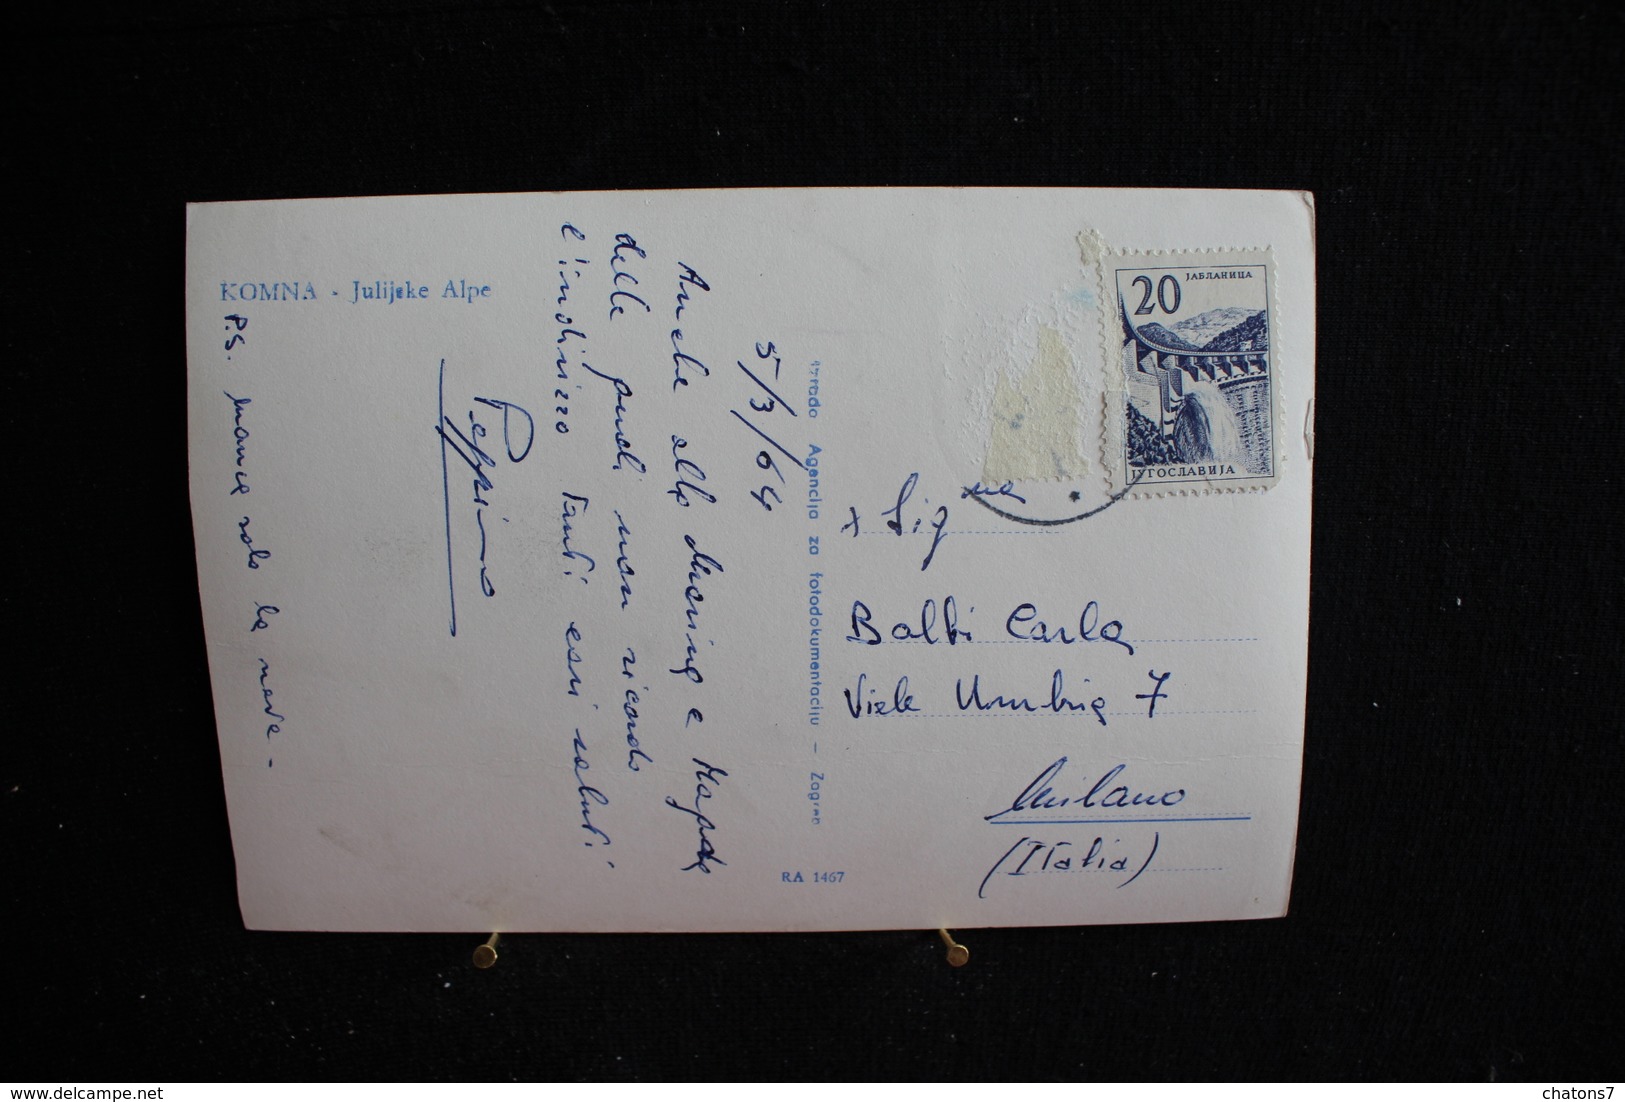 KOMNA - Julijske Alpe
5/3/64
Anche alla mamma e Magda
delle quali non ricordo
l'indirizzo Tanti cari saluti
Peppino
P.S. manca solo la neve -
Izrado Agencija za fotodokumentaciju - Zagreb
RA 1467
20
ЈАБЛАНИЦА
ЈУГОСЛАВИЈА
x Sig na
Balbi Carla
Viale Umbria 7
Milano
(Italia)
delcampe.net
chatons7